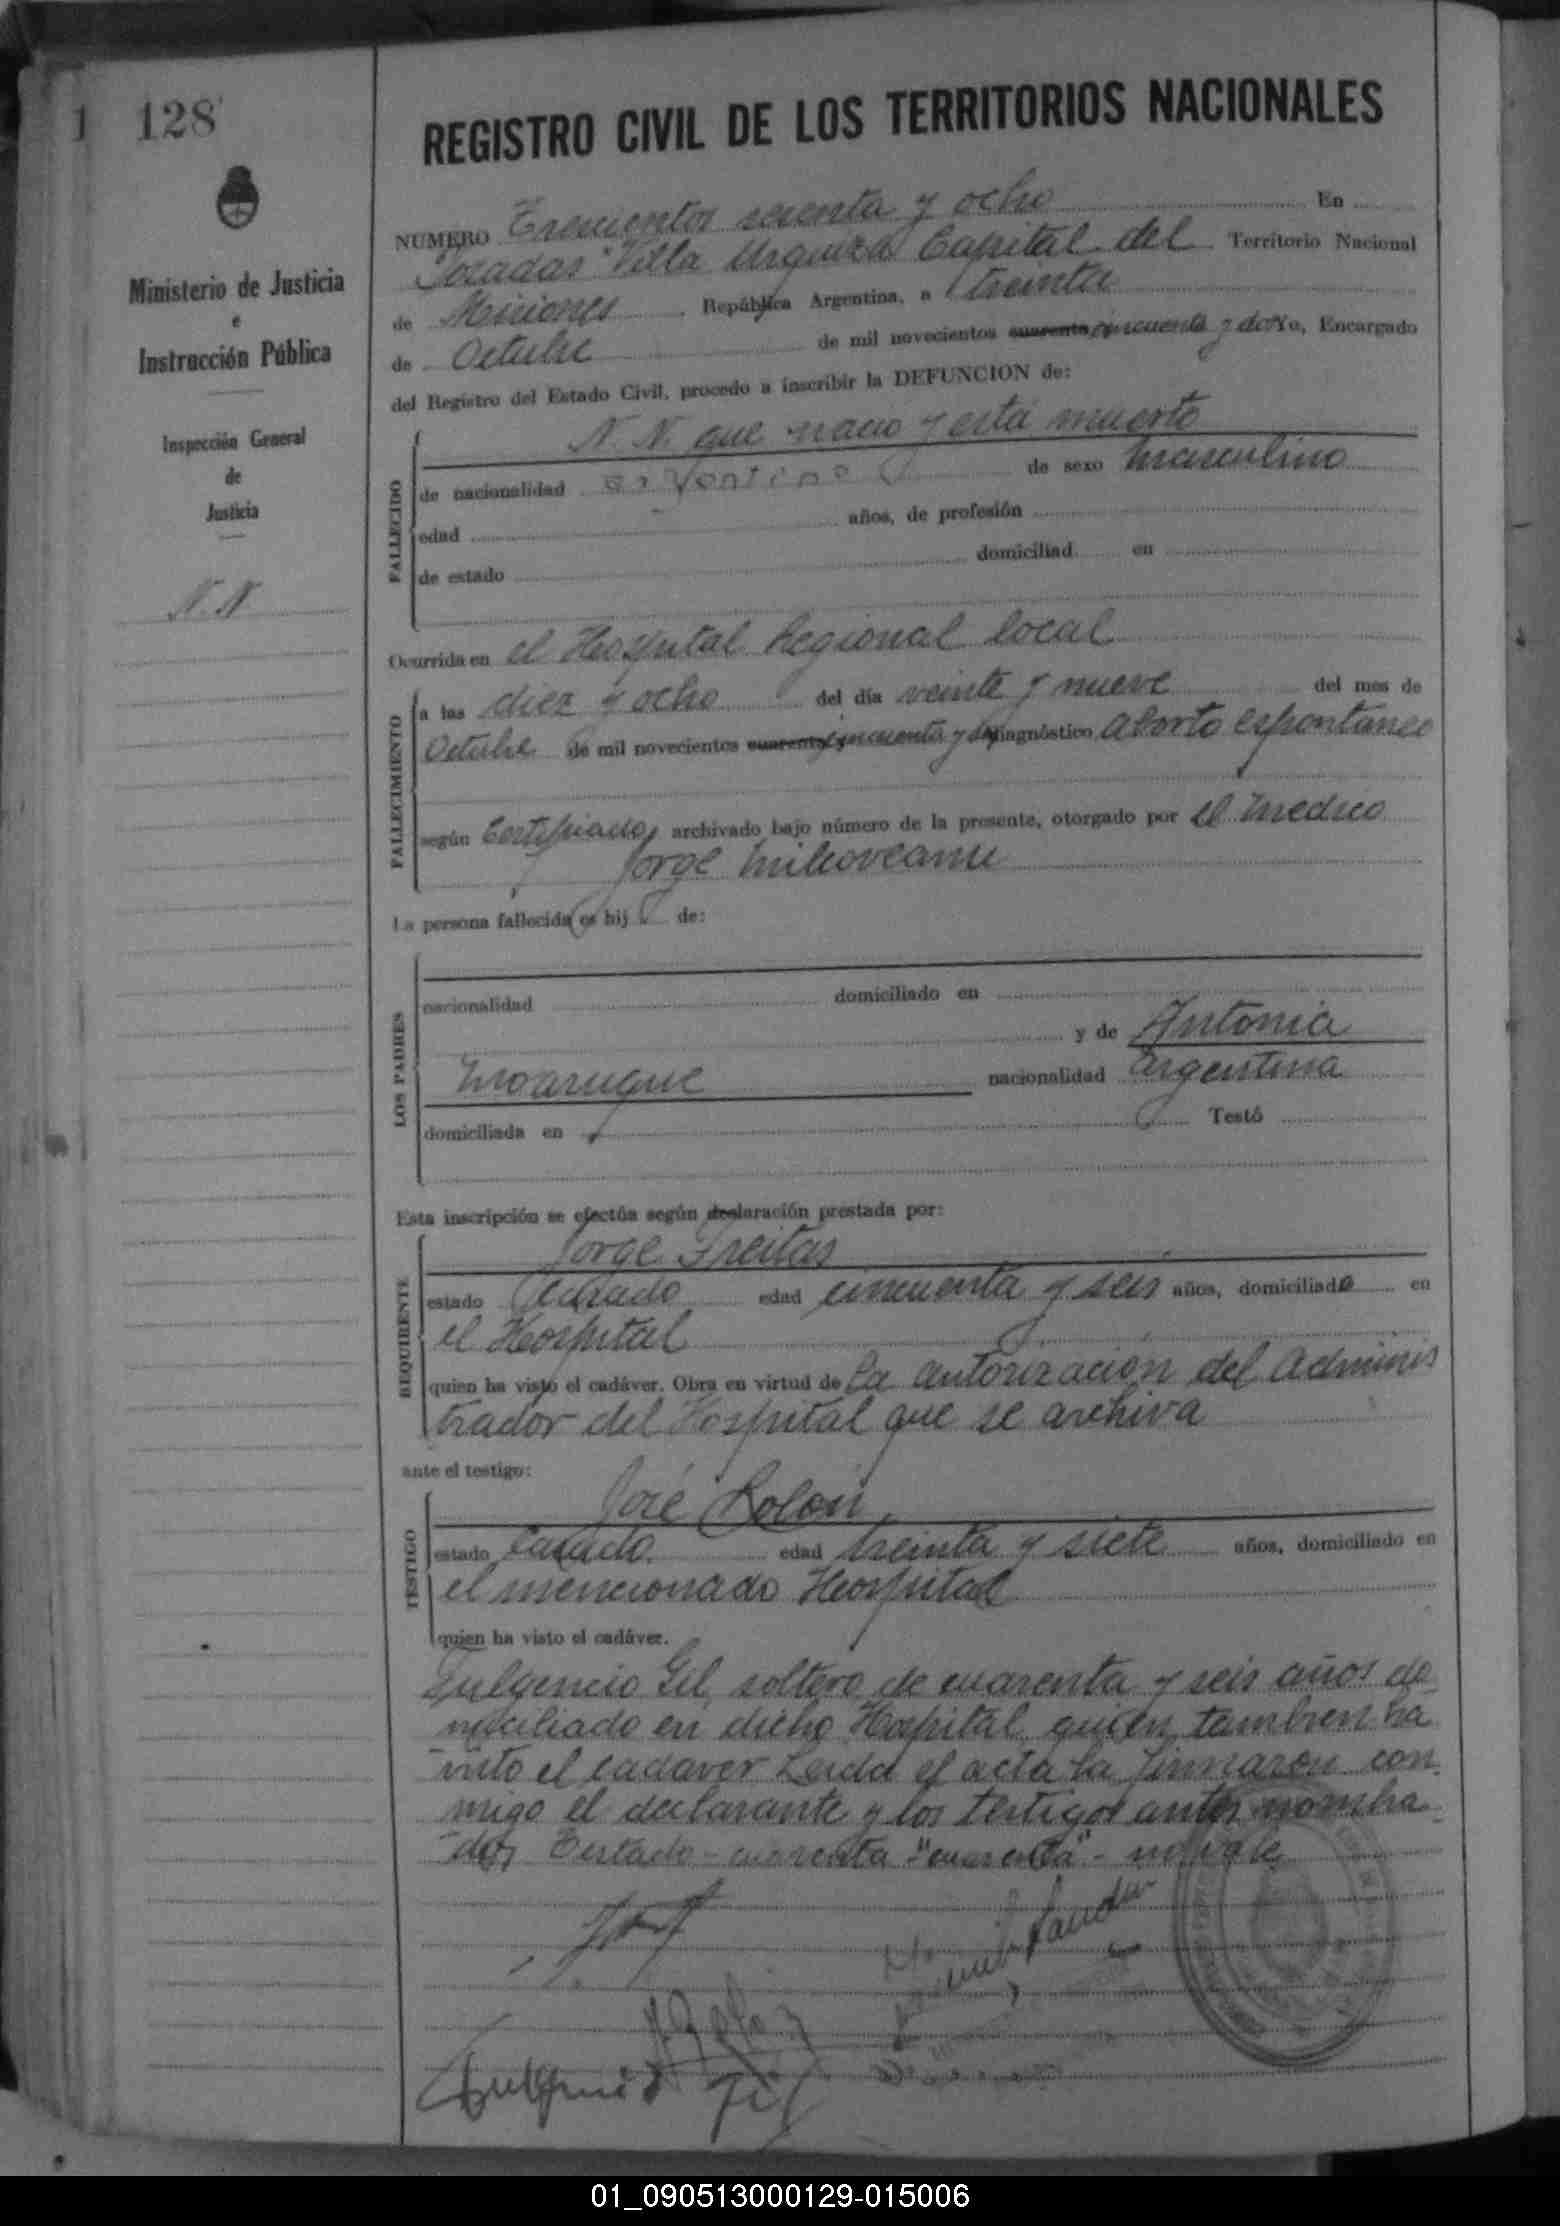 1 128
REGISTRO CIVIL DE LOS TERRITORIOS NACIONALES
Ministerio de Justicia
e
Instrucción Pública
Inspección General
de
Justicia
N.N
NUMERO Trescientos sesenta y ocho En
Posadas Villa Urquiza Capital del Territorio Nacional
de Misiones República Argentina, a treinta
de Octubre de mil novecientos cuarenta cincuenta y dos Yo, Encargado
del Registro del Estado Civil, procedo a inscribir la DEFUNCION de:
FALLECIDO
N. N. que nacio y está muerto
de nacionalidad argentino de sexo masculino
edad años, de profesión
de estado domiciliad en
Ocurrida en el Hospital Regional local
FALLECIMIENTO
a las diez y ocho del día veinte y nueve del mes de
Octubre de mil novecientos cuarenta y cincuenta y dos diagnóstico aborto espontaneo
según Certificado archivado bajo número de la presente, otorgado por el médico
Jorge Milcoveanu
La persona fallecida es hij de:
LOS PADRES
nacionalidad domiciliado en
y de Antonia
nacionalidad argentina
domiciliada en Testó
Esta inscripción se efectúa según declaración prestada por:
REQUIRENTE
Jorge Freitas
estado Casado edad cincuenta y seis años, domiciliado en
el Hospital
quien ha visto el cadáver. Obra en virtud de la autorización del Adminis
trador del Hospital que se archiva
ante el testigo:
TESTIGO
José Rolón
estado Casado edad treinta y siete años, domiciliado en
el mencionado Hospital
quien ha visto el cadáver.
Fulgencio Gil, soltero de cuarenta y seis años do
miciliado en dicho Hospital quien tambien ha
visto el cadaver Leida el acta la firmaron con
migo el declarante y los testigos antes nombra
dos Testado - cuarenta "cuarenta" - no vale
Fulgencio Gil
01_090513000129-015006